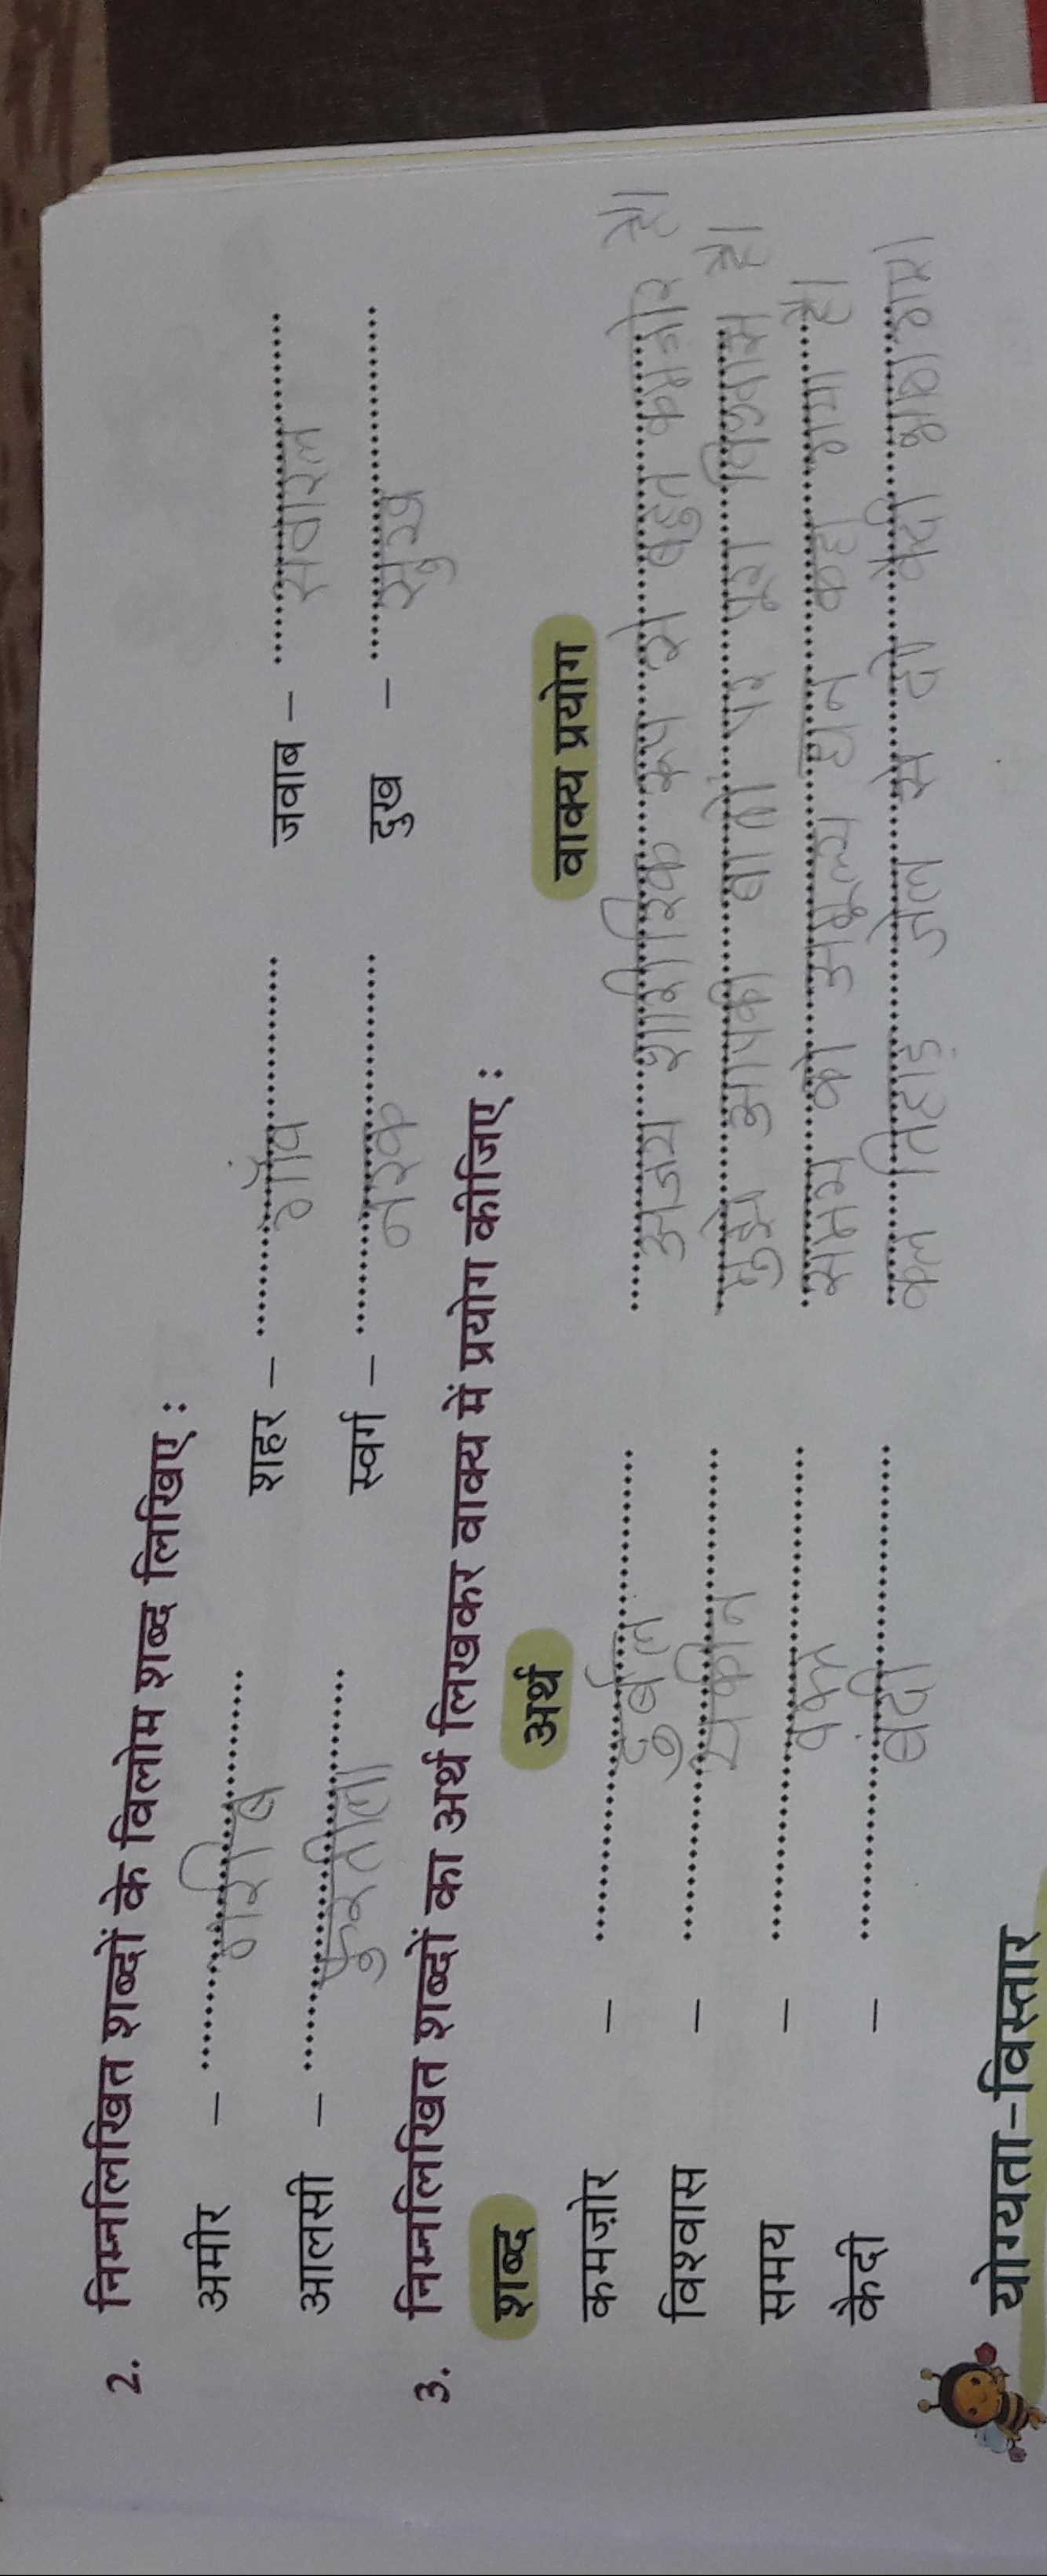 2. निम्नलिखित शब्दों के विलोम शब्द लिखिए :
अमीर – गरीब शहर – गाँव जवाब – सवाल
आलसी – फुरतीला स्वर्ग – नरक दुख – सुख
3. निम्नलिखित शब्दों का अर्थ लिखकर वाक्य में प्रयोग कीजिए :
शब्द अर्थ वाक्य प्रयोग
कमज़ोर – दुर्बल अजय शारीरिक रूप से बहुत कमजोर है।
विश्वास – यकीन मुझे आपकी बातों पर पूरा विश्वास है।
समय – वक्त समय को अमूल्य धन कहा गया है।
कैदी – बंदी कल तिहाड़ जेल से दो कैदी भाग गए।
योग्यता-विस्तार